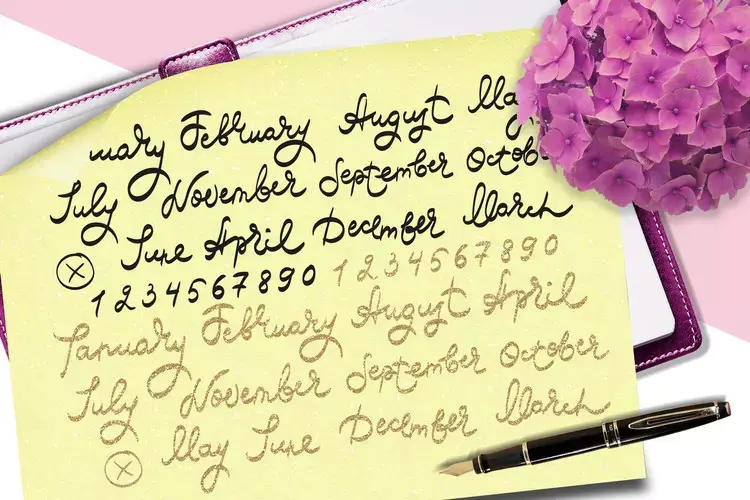 uary February August May
July November September Octob
June April December March
1 2 3 4 5 6 7 8 9 0 1 2 3 4 5 6 7 8 9 0
January February August April
July November September October
May June December March